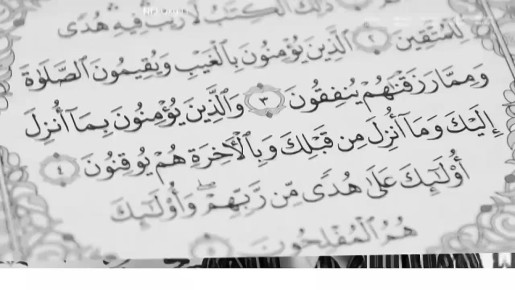 ذَٰلِكَ الْكِتَٰبُ لَا رَيْبَ فِيهِ هُدًى
لِّلْمُتَّقِينَ ٢ الَّذِينَ يُؤْمِنُونَ بِالْغَيْبِ وَيُقِيمُونَ الصَّلَوٰةَ
وَمِمَّا رَزَقْنَٰهُمْ يُنفِقُونَ ٣ وَالَّذِينَ يُؤْمِنُونَ بِمَا أُنزِلَ
إِلَيْكَ وَمَا أُنزِلَ مِن قَبْلِكَ وَبِالْآخِرَةِ هُمْ يُوقِنُونَ ٤
أُولَٰئِكَ عَلَىٰ هُدًى مِّن رَّبِّهِمْ ۖ وَأُولَٰئِكَ
هُمُ الْمُفْلِحُونَ ٥